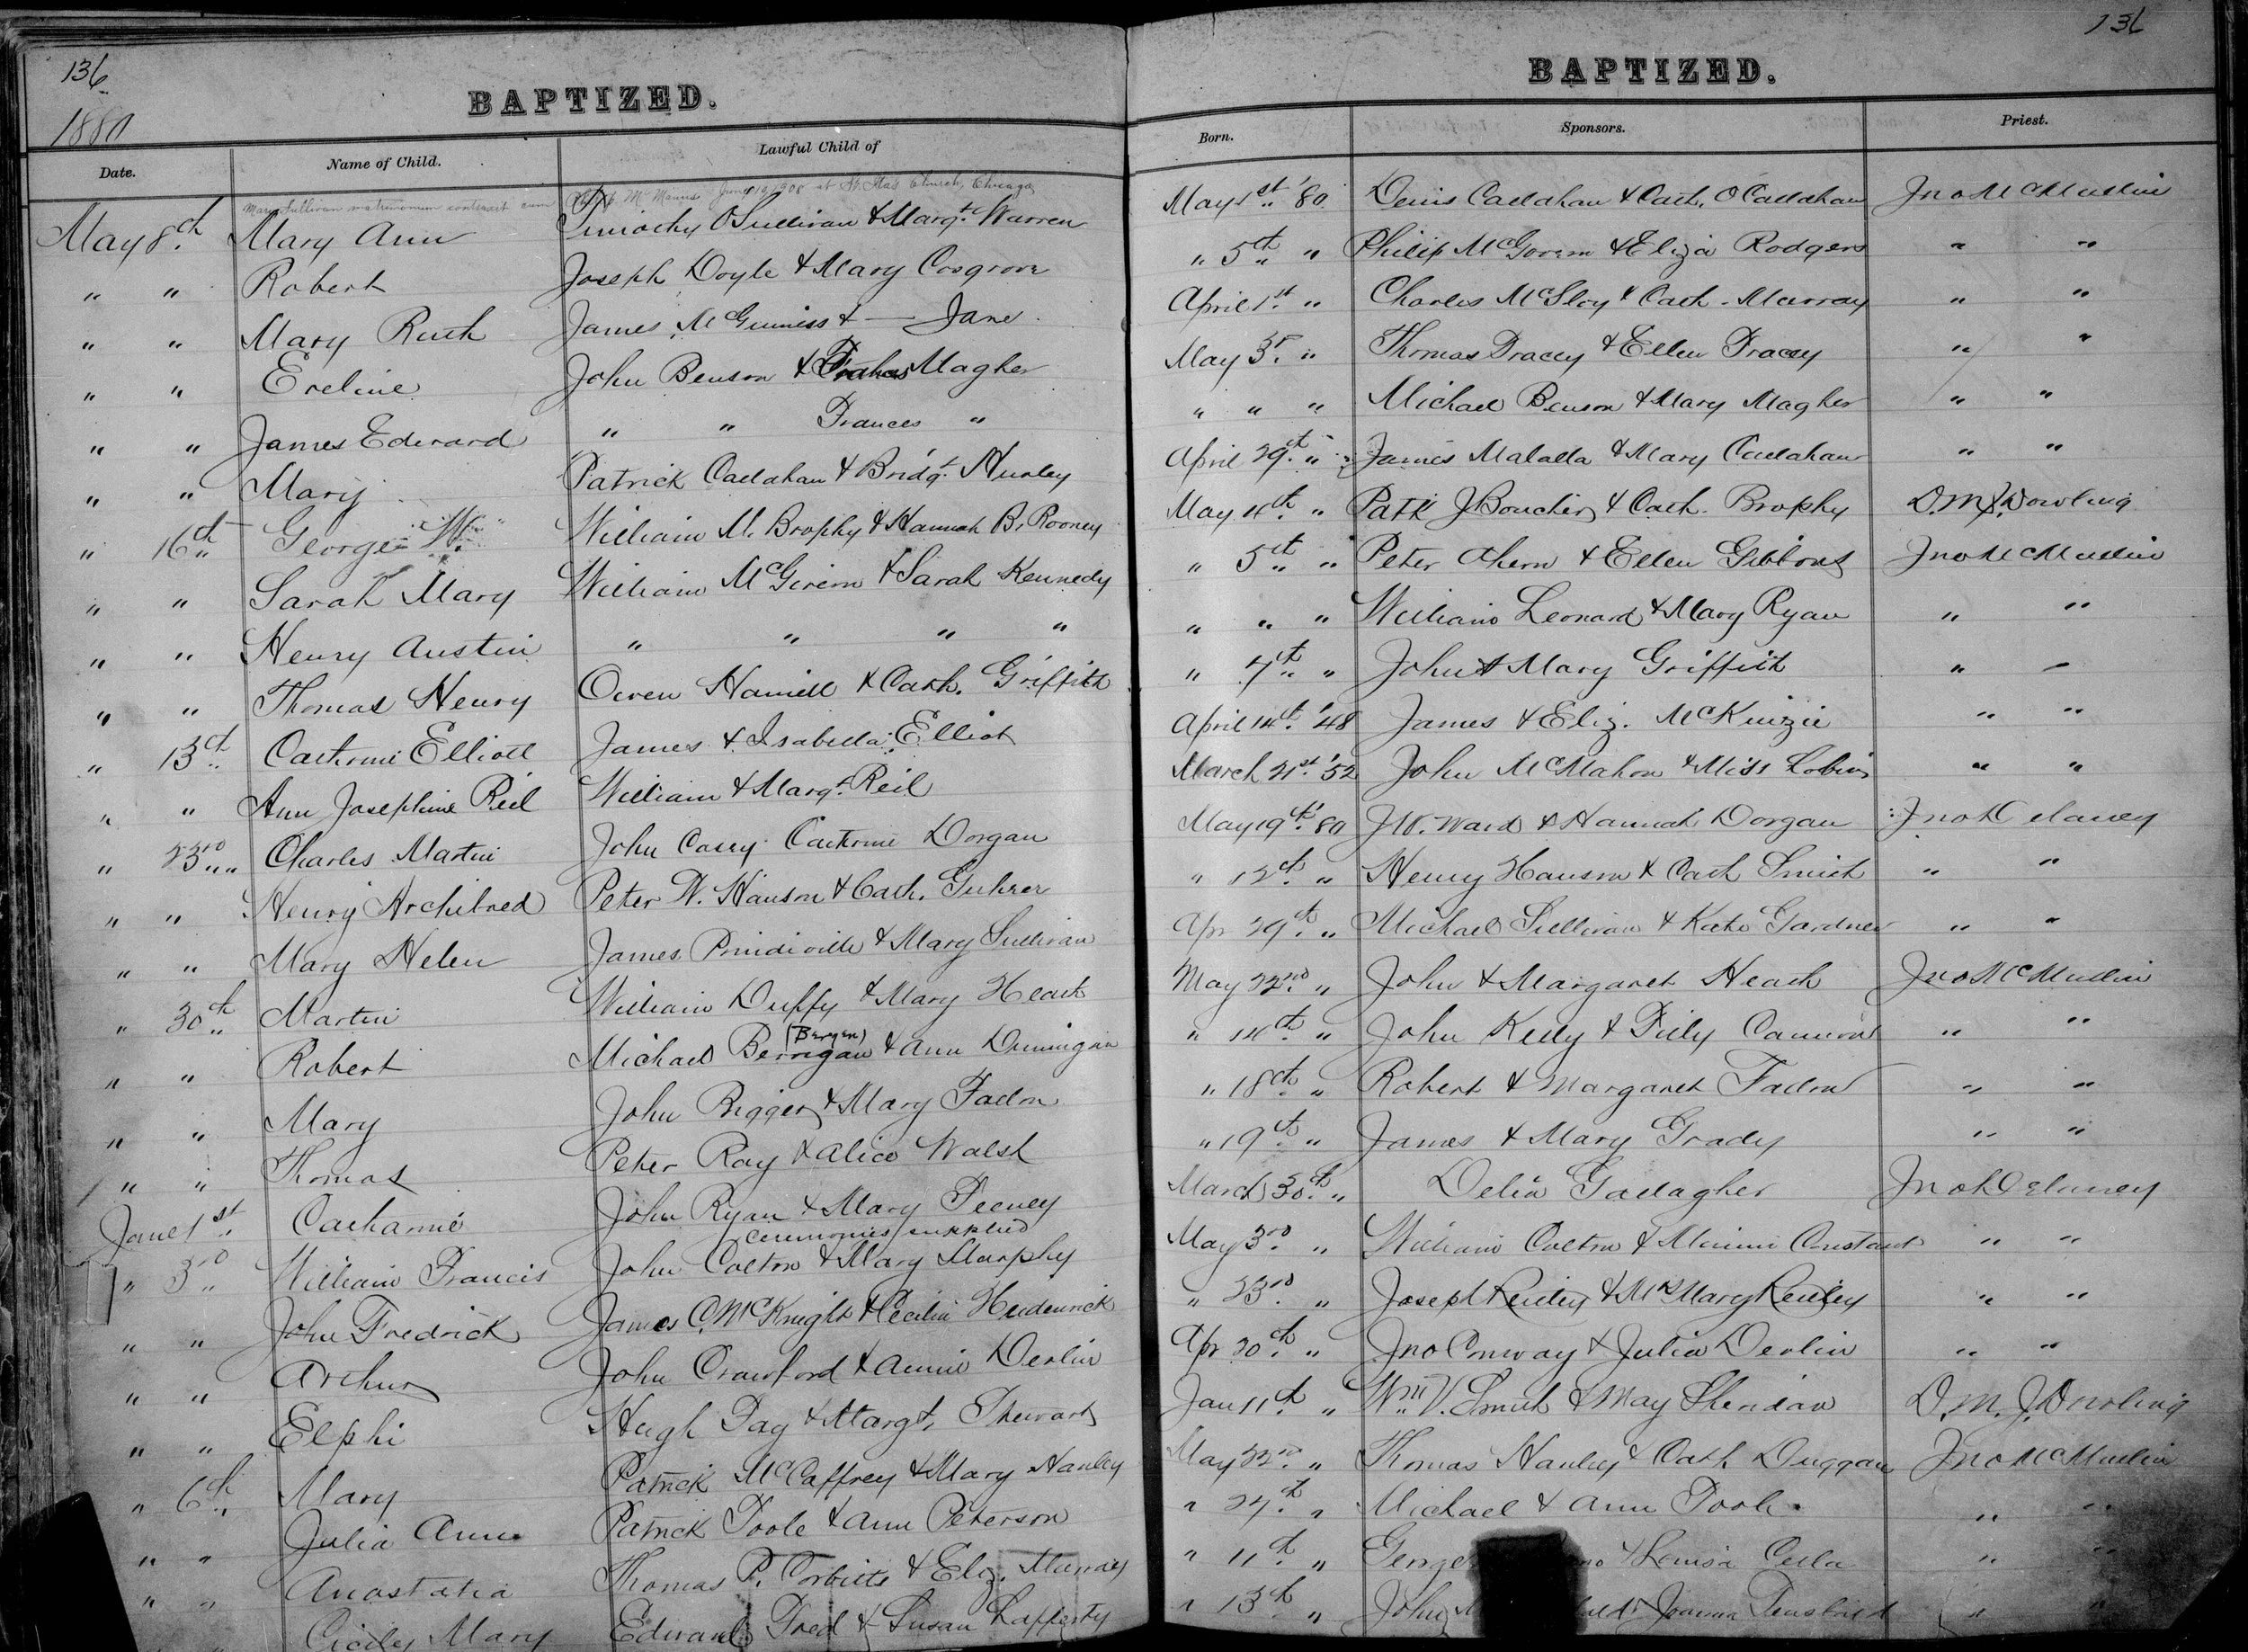 136
1880
BAPTIZED.
Date. Name of Child. Lawful Child of
Mary Sullivan matrimonium contraxit cum McManus June 1908 at Church, Chicago
May 8th Mary Ann Timothy O'Sullivan & Margt. Warren
" " Robert Joseph Doyle & Mary Cosgrove
" " Mary Ruth James McGuiniss & — Jane
" " Eveline John Benson & Frances Magher
" " James Edward " " Frances "
" " Mary Patrick Callahan & Bridgt. Hurley
" 16th George W. William M. Brophy & Hannah B. Rooney
" " Sarah Mary William McGivern & Sarah Kennedy
" " Henry Austin " " " "
" " Thomas Henry Owen Hamill & Cath. Griffith
" 13th Catherine Elliott James & Isabella Elliot
" " Ann Josephine Reil William & Margt. Reil
" 23rd Charles Martin John Casey Catherine Dorgan
" " Henry Archibred Peter W. Hanson & Cath. Guhrer
" " Mary Helen James Prindiville & Mary Sullivan
" 30th Martin William Duffy & Mary Heath
(Bergen)
" " Robert Michael Berrigan & Ann Dunnigan
" " Mary John Bigger & Mary Fadon
" " Thomas Peter Ray & Alice Walsh
June 1st Catharine John Ryan & Mary Feeney
ceremonies supplied
" 3rd William Francis John Colton & Mary Murphy
" " John Fredrick James C. McKnight & Cecilia Heidenrick
" " Arthur John Crawford & Annie Devlin
" " Elphi Hugh Day & Margt. Stewart
" 6th Mary Patrick McCaffrey & Mary Hanley
" " Julia Ann Patrick Toole & Ann Peterson
" " Anastatia Thomas P. Corbitts & Eliz. Murray
" " Cicily Mary Edward Fred & Susan Lafferty
136
BAPTIZED.
Born. Sponsors. Priest.
May 1st '80 Denis Callahan & Cath. O'Callahan Jno McMullin
" 5th " Philip McGovern & Eliza Rodgers " "
April 1st " Charles McSloy & Cath. Murray " "
May 3r " Thomas Tracey & Ellen Tracey " "
" " " Michael Benson & Mary Magher " "
April 29th " James Malalla & Mary Callahan " "
May 4th " Patk J Boucher & Cath. Brophy D.M.J. Dowling
" 5th " Peter Ahern & Ellen Gibbons Jno McMullin
" " " William Leonard & Mary Ryan " "
" 7th " John & Mary Griffith " "
April 14th '48 James & Eliz. McKinzie " "
March 21st '52 John McMahon & Miss Lobin " "
May 19th '80 J.W. Ward & Hannah Dorgan Jno Delaney
" 12th " Henry Hanson & Cath Smith " "
Apr 29th " Michael Sullivan & Kate Gardner " "
May 22nd " John & Margaret Heath Jno McMullin
" 14th " John Kelly & Tilly Cameron " "
" 18th " Robert & Margaret Fadon " "
" 19th " James & Mary Grady " "
March 30th " Delia Gallagher Jno Delaney
May 3rd " William Colton & Minnie Constant " "
" 23rd " Joseph Reiley & Mrs Mary Reiley " "
Apr 20th " Jno Conway & Julia Devlin " "
Jan 11th " Wm V. Smith & May Sheridan D.M.J. Dowling
May 22nd " Thomas Hanley & Cath Duggan Jno McMullin
" 27th " Michael & Ann Toole " "
" 11th " George & Louisa Cella " "
" 13th " John Joanna " "